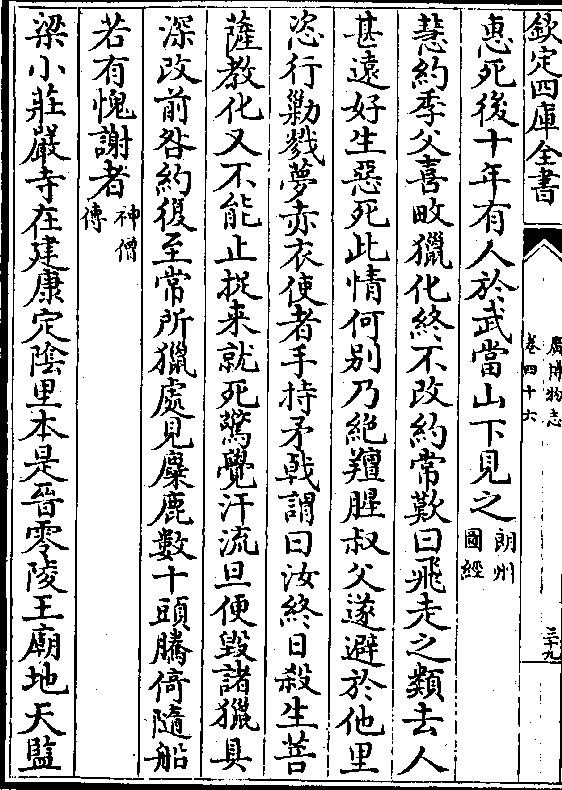 欽定四庫全書
廣博物志
卷四十六
三十九
惠死後十年有人於武當山下見之朗州
圖經
慧約季父喜畋獵化終不改約常歎曰飛走之類去人
甚遠好生惡死此情何别乃絶羶腥叔父遂避於他里
恣行勦戮夢赤衣使者手持矛戟謂曰汝終日殺生菩
薩教化又不能止捉来就死驚覺汗流旦便毁諸獵具
深改前咎約復至常所獵處見麋鹿數十頭騰倚隨船
若有愧謝者神僧
傳
梁小莊嚴寺在建康定陰里本是晉零陵王廟地天監